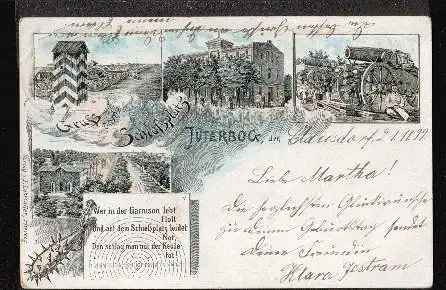 Gruss vom
Schiessplatz
JÜTERBOG, den
Liebe Martha!
Die herzlichsten Glückwünsche
zu deinem Geburtstag sendet
Deine Freundin
Klara Jestram
Wer in der Garnison lebt
flott
Und auf dem Schießplatz leidet
Not,
Den schlag man mit der Keule
tot